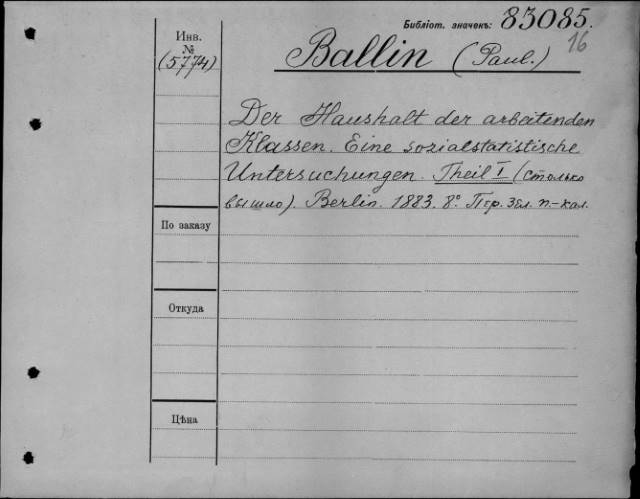 Библіот. значекъ: 83085.
16
Инв.
№
(5774)
Ballin (Paul.)
Der Haushalt der arbeitenden
Klassen. Eine sozialstatistische
Untersuchungen. Theil I (столько
вышло). Berlin. 1883. 8° Пер. зел. п.-кол.
По заказу
Откуда
Цѣна